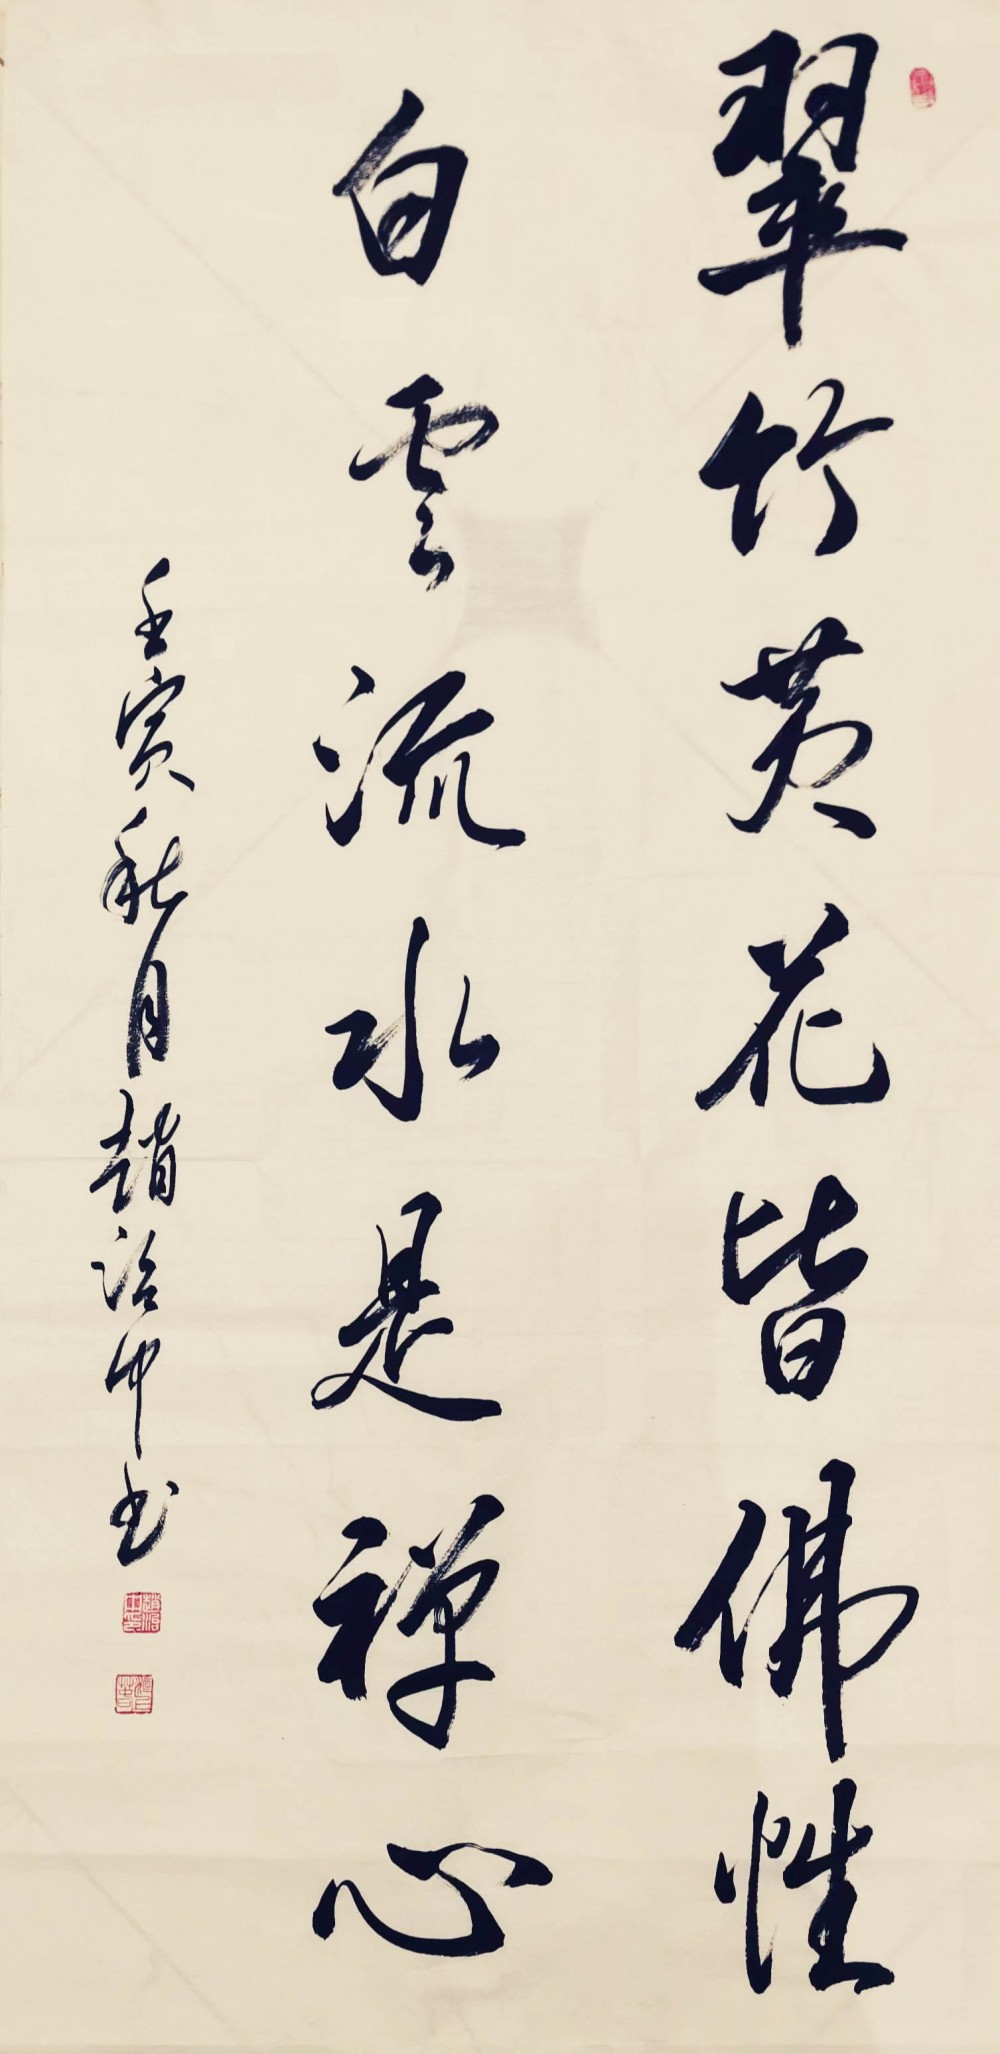 翠竹黄花皆佛性
白雲流水是禅心
壬寅秋月趙治中书